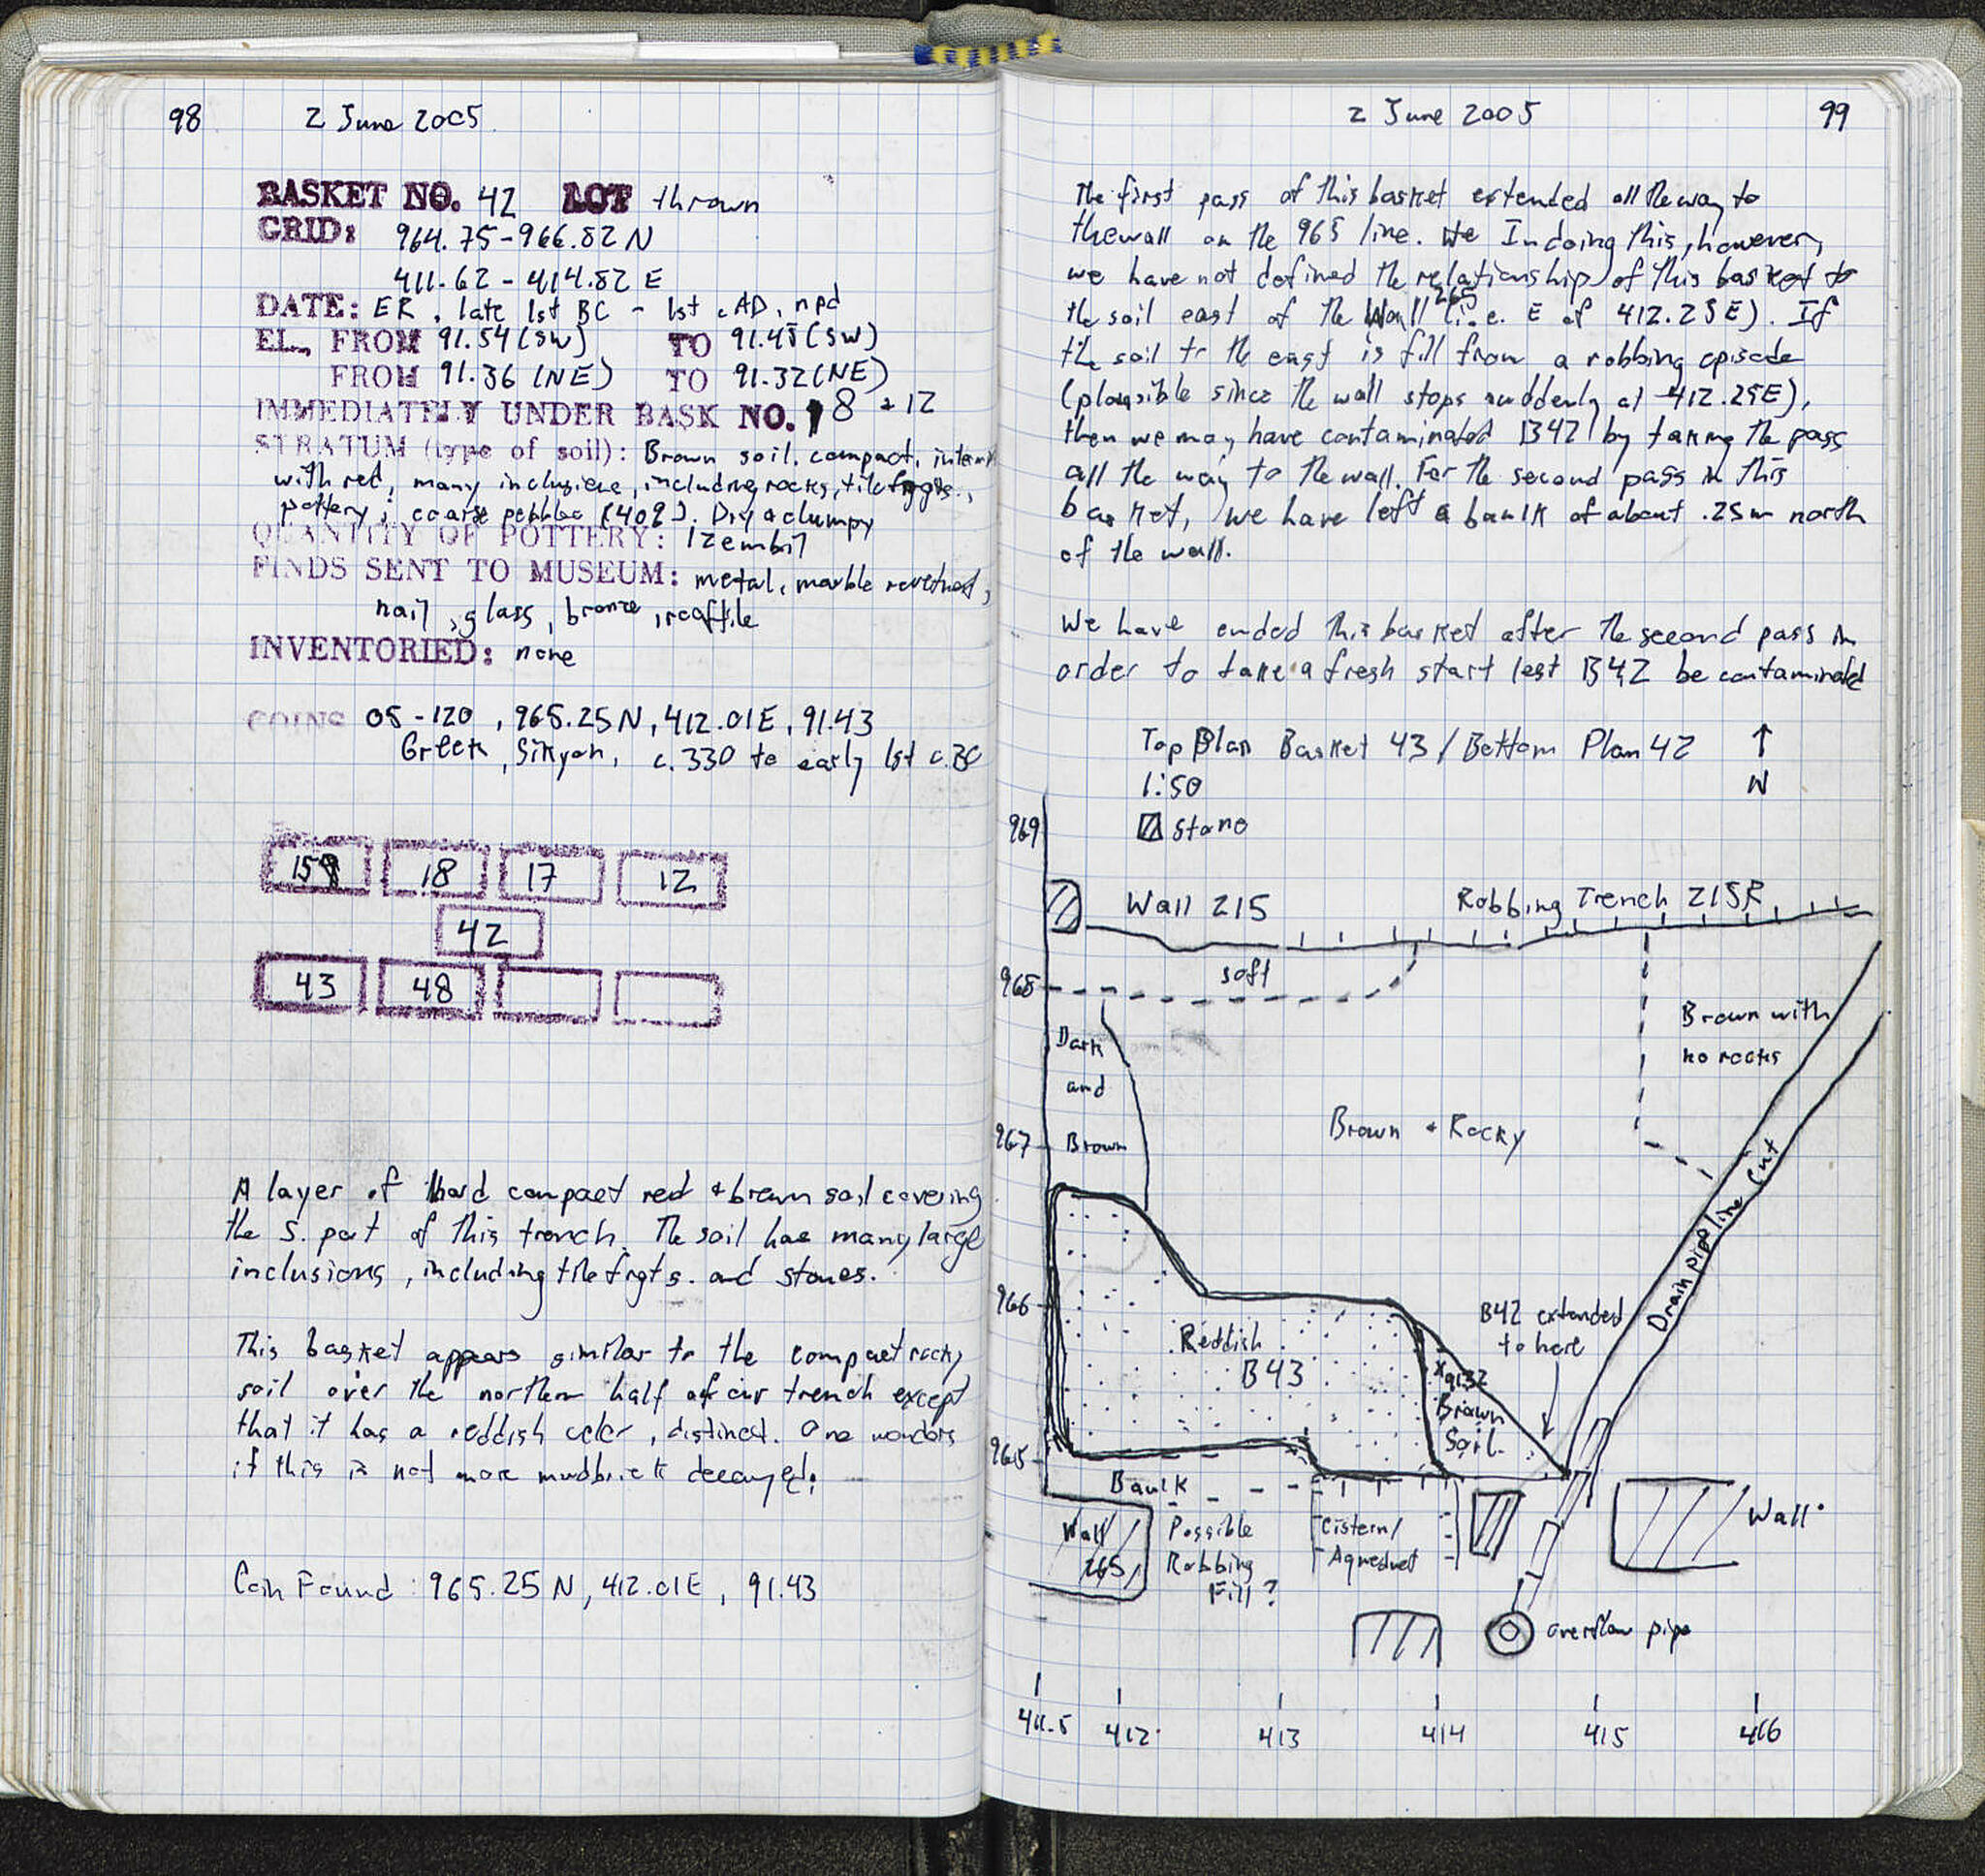 98
2 June 2005
BASKET NO. 42 LOT thrown
GRID: 964.75-966.82 N
411.62-414.82 E
DATE: ER, late 1st BC - 1st c AD, npd
EL., FROM 91.54 (SW) TO 91.45 (SW)
FROM 91.36 (NE) TO 91.32 (NE)
IMMEDIATELY UNDER BASK NO. 8 + 12
STRATUM (type of soil): Brown soil, compact,
with red, many inclusions, including rocks, tile frgts.,
pottery; coarse pebbles (40%). Dry & clumpy
QUANTITY OF POTTERY: 1 zembil
FINDS SENT TO MUSEUM: metal, marble revetment,
nail, glass, bronze, rooftile
INVENTORIED: none
COINS 05-120, 965.25 N, 412.01 E, 91.43
Greek, Sikyon, c. 330 to early 1st c. BC
15 18 17 12
42
43 48
A layer of hard compact red & brown soil covering
the S. part of this trench. The soil has many large
inclusions, including tile frgts. and stones.
This basket appears similar to the compact rocky
soil over the northern half of our trench except
that it has a reddish color, distinct. One wonders
if this is not more mudbrick decayed.
Coin Found: 965.25 N, 412.01 E, 91.43
2 June 2005
99
The first pass of this basket extended all the way to
the wall on the 965 line. We In doing this, however,
we have not defined the relationship of this basket to
the soil east of the Wall 265 (i.e. E of 412.25 E). If
the soil to the east is fill from a robbing episode
(plausible since the wall stops suddenly at 412.25E),
then we may have contaminated B42 by taking the pass
all the way to the wall. For the second pass in this
basket, we have left a baulk of about .25m north
of the wall.
We have ended this basket after the second pass in
order to take a fresh start lest B42 be contaminated
Top Plan Basket 43 / Bottom Plan 42 ↑
1:50 N
Stone
969
Wall 215
Robbing Trench 215R
968
soft
Brown with
no rocks
Dark
and
Brown
967
Brown + Rocky
Drain pipe line Cut
966
B42 extended
to here
Reddish
B43
x 91.32
Brown
Soil
965
Baulk
Wall
265
Possible
Robbing
Fill?
Cistern/
Aqueduct
Wall
overflow pipe
411.5 412 413 414 415 416